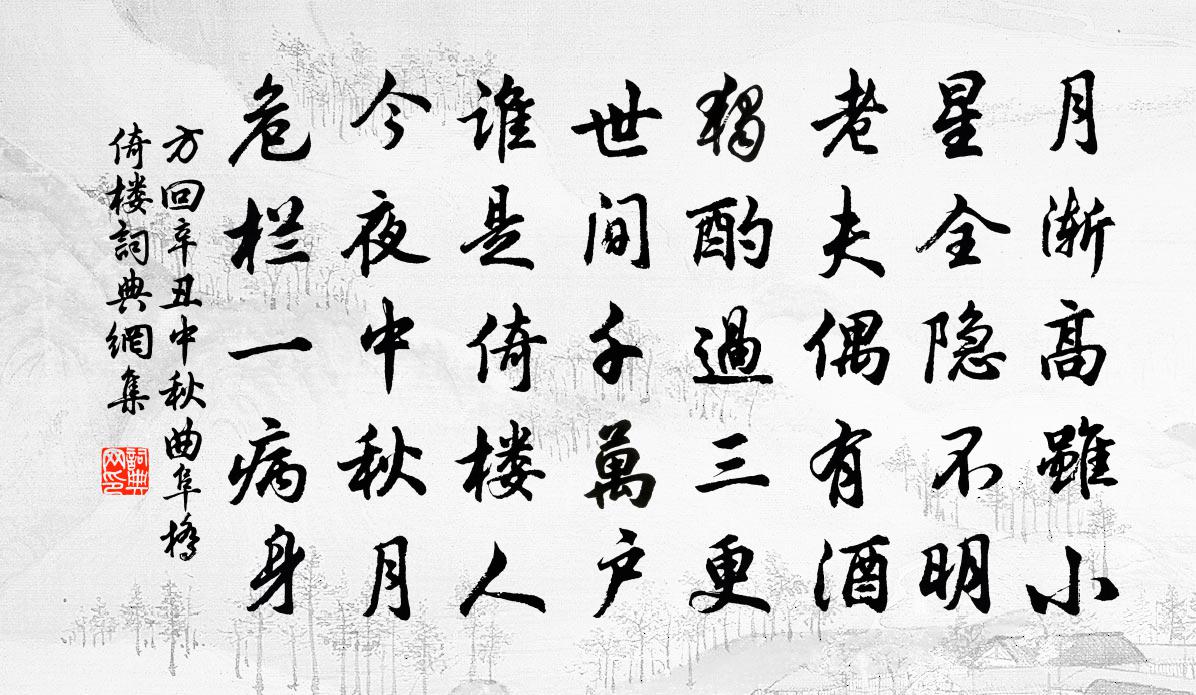 月渐高雖小
星全隐不明
老夫偶有酒
獨酌過三更
世间千萬户
谁是倚楼人
今夜中秋月
危栏一病身
方回辛丑中秋曲阜橋
倚楼詞典網集
詞典网印